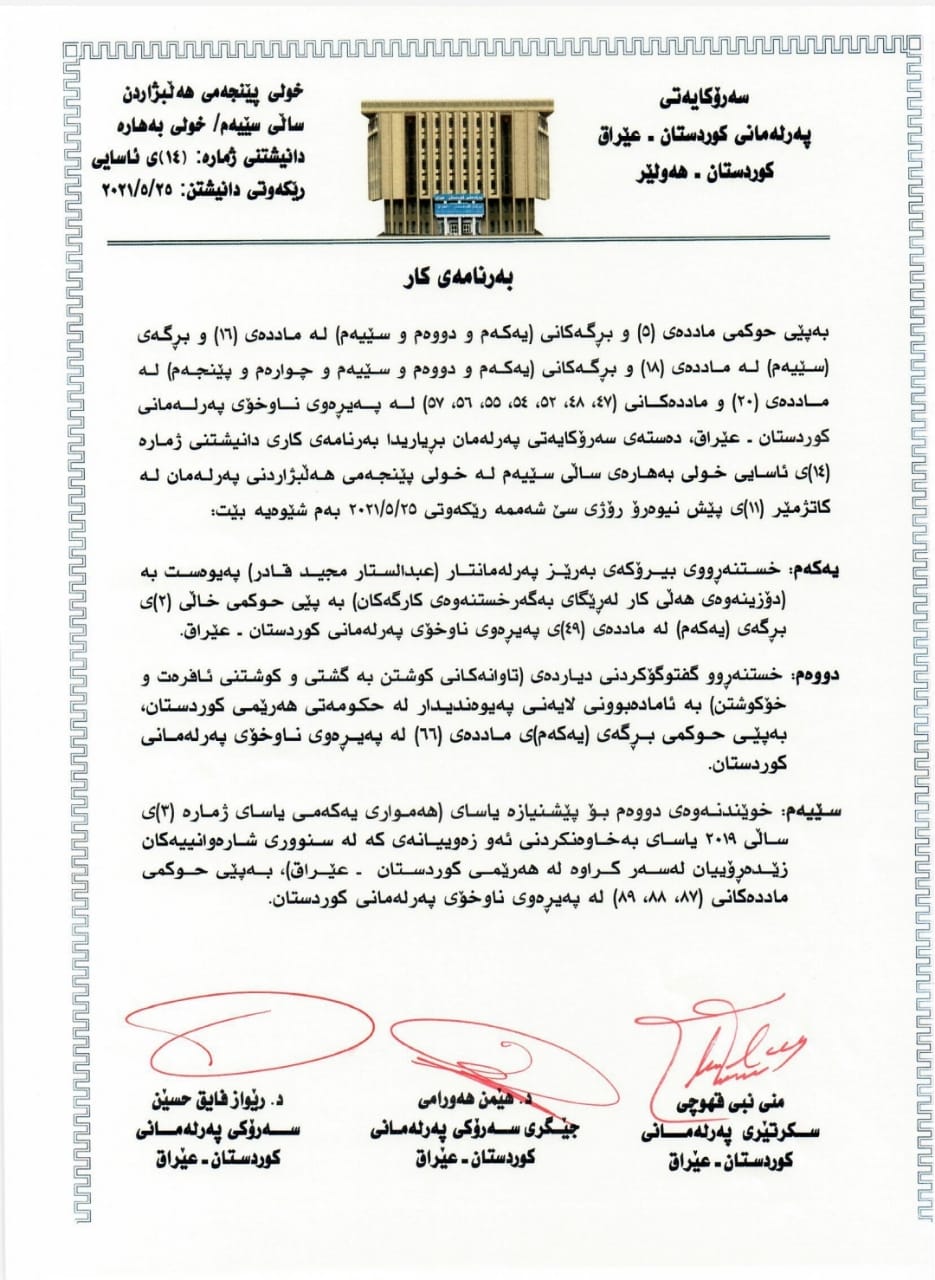 سەرۆکایەتی
پەرلەمانی کوردستان ـ عێراق
کوردستان ـ هەولێر
خولی پێنجەمی هەڵبژاردن
ساڵی سێیەم/ خولی بەهارە
دانیشتنی ژمارە: (١٤)ی ئاسایی
رێکەوتی دانیشتن: ٢٠٢١/٥/٢٥
بەرنامەی کار
بەپێی حوکمی ماددەی (٥) و برگەکانی (یەکەم و دووەم و سێیەم) لە ماددەی (١٦) و برگەی
(سێیەم) لە ماددەی (١٨) و برگەکانی (یەکەم و دووەم و سێیەم و چوارەم و پێنجەم) لە
ماددەی (٢٠) و ماددەکانی (٤٧، ٤٨، ٥٢، ٥٤، ٥٥، ٥٦، ٥٧) لە پەیرەوی ناوخۆی پەرلەمانی
کوردستان ـ عێراق، دەستەی سەرۆکایەتی پەرلەمان بریاریدا بەرنامەی کاری دانیشتنی ژمارە
(١٤)ی ئاسایی خولی بەهارەی ساڵی سێیەم لە خولی پێنجەمی هەڵبژاردنی پەرلەمان لە
کاتژمێر (١١)ی پێش نیوەرۆ رۆژی سێ شەممە رێکەوتی ٢٠٢١/٥/٢٥ بەم شێوەیە بێت:
یەکەم: خستنەڕووی بیرۆکەی بەرێز پەرلەمانتار (عبدالستار مجید قادر) پەیوەست بە
(دۆزینەوەی هەڵی کار لەرێگای بەگەرخستنەوەی کارگەکان) بە پێی حوکمی خاڵی (٢)ی
برگەی (یەکەم) لە ماددەی (٤٩)ی پەیرەوی ناوخۆی پەرلەمانی کوردستان ـ عێراق.
دووەم: خستنەڕوو گفتوگۆکردنی دیاردەی (تاوانەکانی کوشتن بە گشتی و کوشتنی ئافرەت و
خۆکوشتن) بە ئامادەبوونی لایەنی پەیوەندیدار لە حکومەتی هەرێمی کوردستان،
بەپێی حوکمی برگەی (یەکەم)ی ماددەی (٦٦) لە پەیرەوی ناوخۆی پەرلەمانی
کوردستان.
سێیەم: خوێندنەوەی دووەم بۆ پێشنیازە یاسای (هەمواری یەکەمی یاسای ژمارە (٣)ی
ساڵی ٢٠١٩ یاسای بەخاوەنکردنی ئەو زەوییانەی کە لە سنووری شارەوانییەکان
زێدەڕۆییان لەسەر کراوە لە هەرێمی کوردستان ـ عێراق)، بەپێی حوکمی
ماددەکانی (٨٧، ٨٨، ٨٩) لە پەیرەوی ناوخۆی پەرلەمانی کوردستان.
منی نبی قهوچی
سکرتێری پەرلەمانی
کوردستان ـ عێراق
د. هێمن هەورامی
جێگری سەرۆکی پەرلەمانی
کوردستان ـ عێراق
د. رێواز فایق حسێن
سەرۆکی پەرلەمانی
کوردستان ـ عێراق